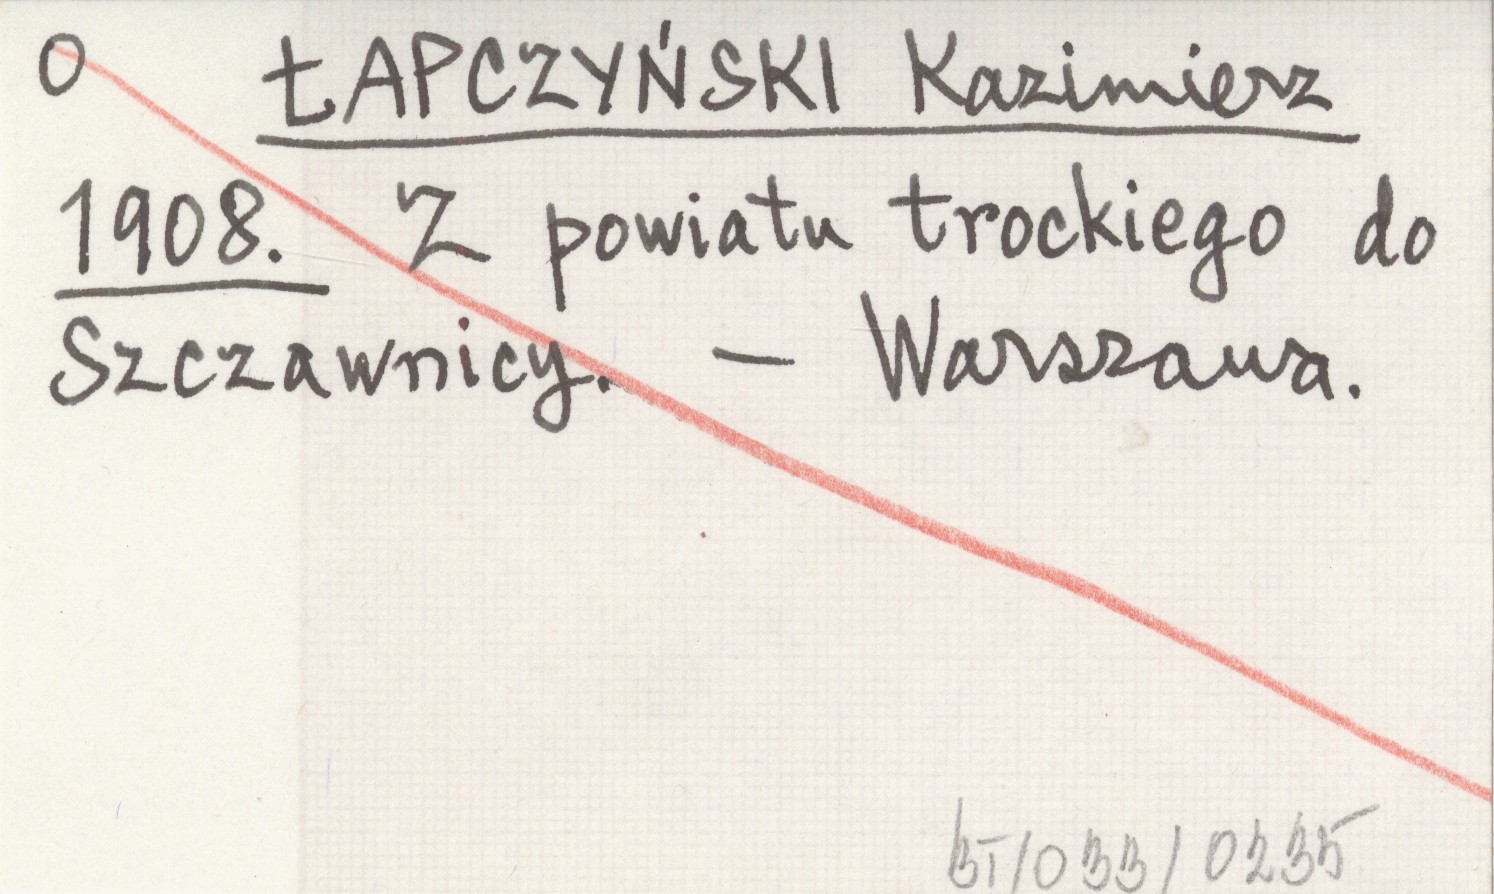 O ŁAPCZYŃSKI Kazimierz
1908. Z powiatu trockiego do
Szczawnicy. — Warszawa.
BT/033/0235